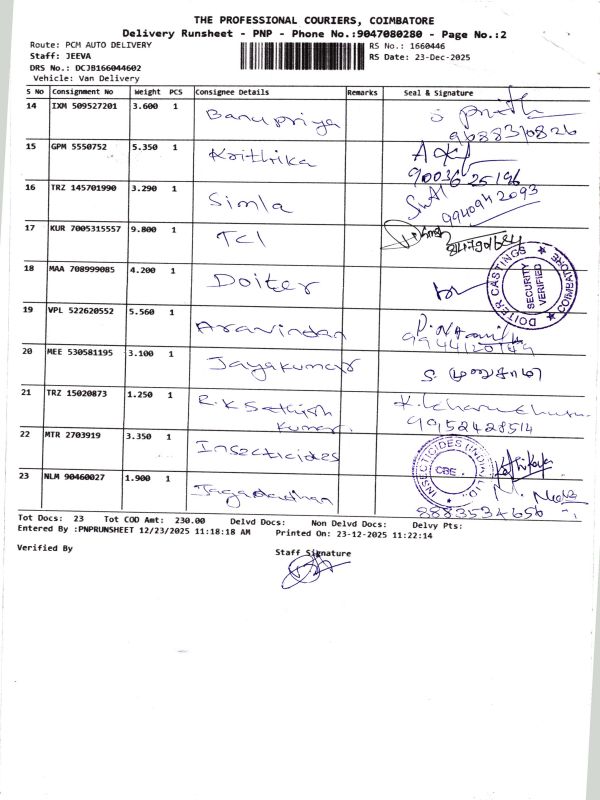 THE PROFESSIONAL COURIERS, COIMBATORE
Delivery Runsheet - PNP - Phone No.:9047080280 - Page No.:2
Route: PCM AUTO DELIVERY RS No.: 1660446
Staff: JEEVA RS Date: 23-Dec-2025
DRS No.: DCJB166044602
Vehicle: Van Delivery
S No Consignment No Weight PCS Consignee Details Remarks Seal & Signature
14 IXM 509527201 3.600 1 Banupriya
9688310826
15 GPM 5550752 5.350 1 Krithika
90036 25196
16 TRZ 145701990 3.290 1 Simla
9940942093
17 KUR 7005315557 9.800 1 TCI
18 MAA 708999085 4.200 1 Doiter
DOITER CASTINGS ★ COIMBATORE ★
SECURITY
VERIFIED
19 VPL 522620552 5.560 1 Aravindan
9944120749
20 MEE 530581195 3.100 1 Jayakumar
21 TRZ 15020873 1.250 1 R.K Sathish
Kumar.
9952428514
22 MTR 2703919 3.350 1 Insecticides
INSECTICIDES (INDIA) LTD.
CBE.
23 NLM 90460027 1.900 1 Jaganadhan
8883534656
Tot Docs: 23 Tot COD Amt: 230.00 Delvd Docs: Non Delvd Docs: Delvy Pts:
Entered By :PNPRUNSHEET 12/23/2025 11:18:18 AM Printed On: 23-12-2025 11:22:14
Verified By Staff Signature